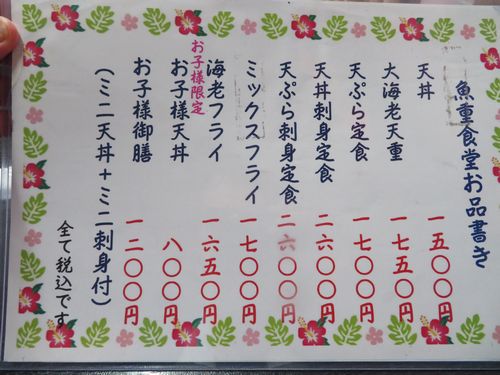 魚重食堂お品書き
天丼 一五〇〇円
大海老天重 一七五〇円
天ぷら定食 一七〇〇円
天丼刺身定食 二六〇〇円
天ぷら刺身定食 二六〇〇円
ミックスフライ 一七〇〇円
海老フライ 一六五〇円
お子様限定
お子様天丼 八〇〇円
お子様御膳 一二〇〇円
（ミニ天丼＋ミニ刺身付）
全て税込です